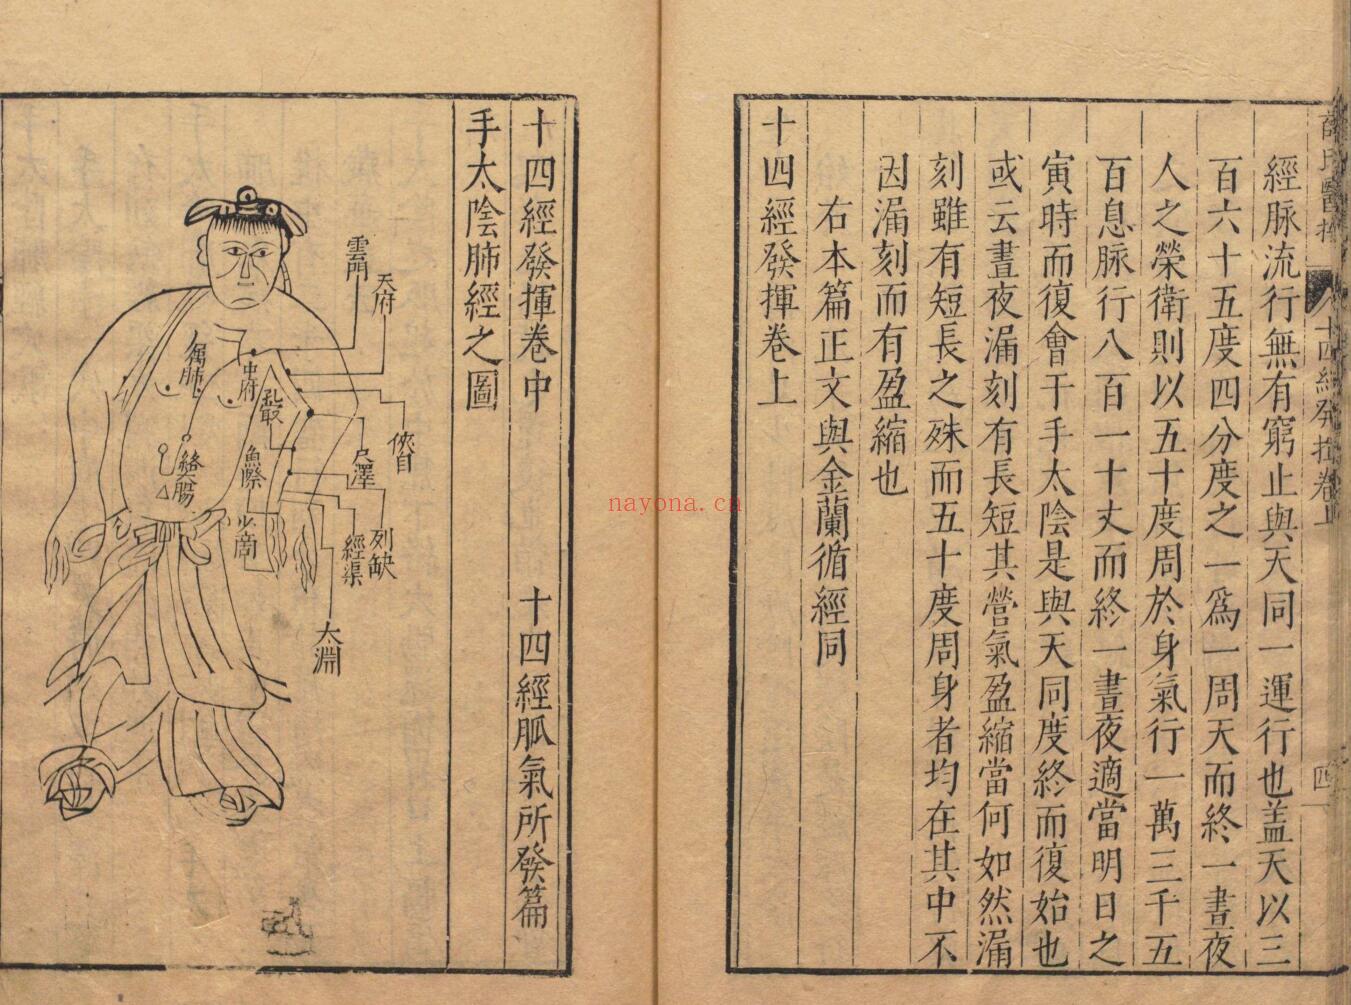 經脉流行無有窮止與天同一運行也盖天以三
百六十五度四分度之一爲一周天而終一晝夜
人之榮衛則以五十度周於身氣行一萬三千五
百息脉行八百一十丈而終一晝夜適當明日之
寅時而復會于手太陰是與天同度終而復始也
或云晝夜漏刻有長短其營氣盈縮當何如然漏
刻雖有短長之殊而五十度周身者均在其中不
因漏刻而有盈縮也
右本篇正文與金蘭循經同
十四經發揮卷上
十四經發揮卷上
四
十四經發揮卷中
十四經脈氣所發篇
手太陰肺經之圖
雲門
天府
中府
屬肺
俠白
尺澤
魚際
絡大腸
少商
列缺
經渠
太淵
nayona.cn